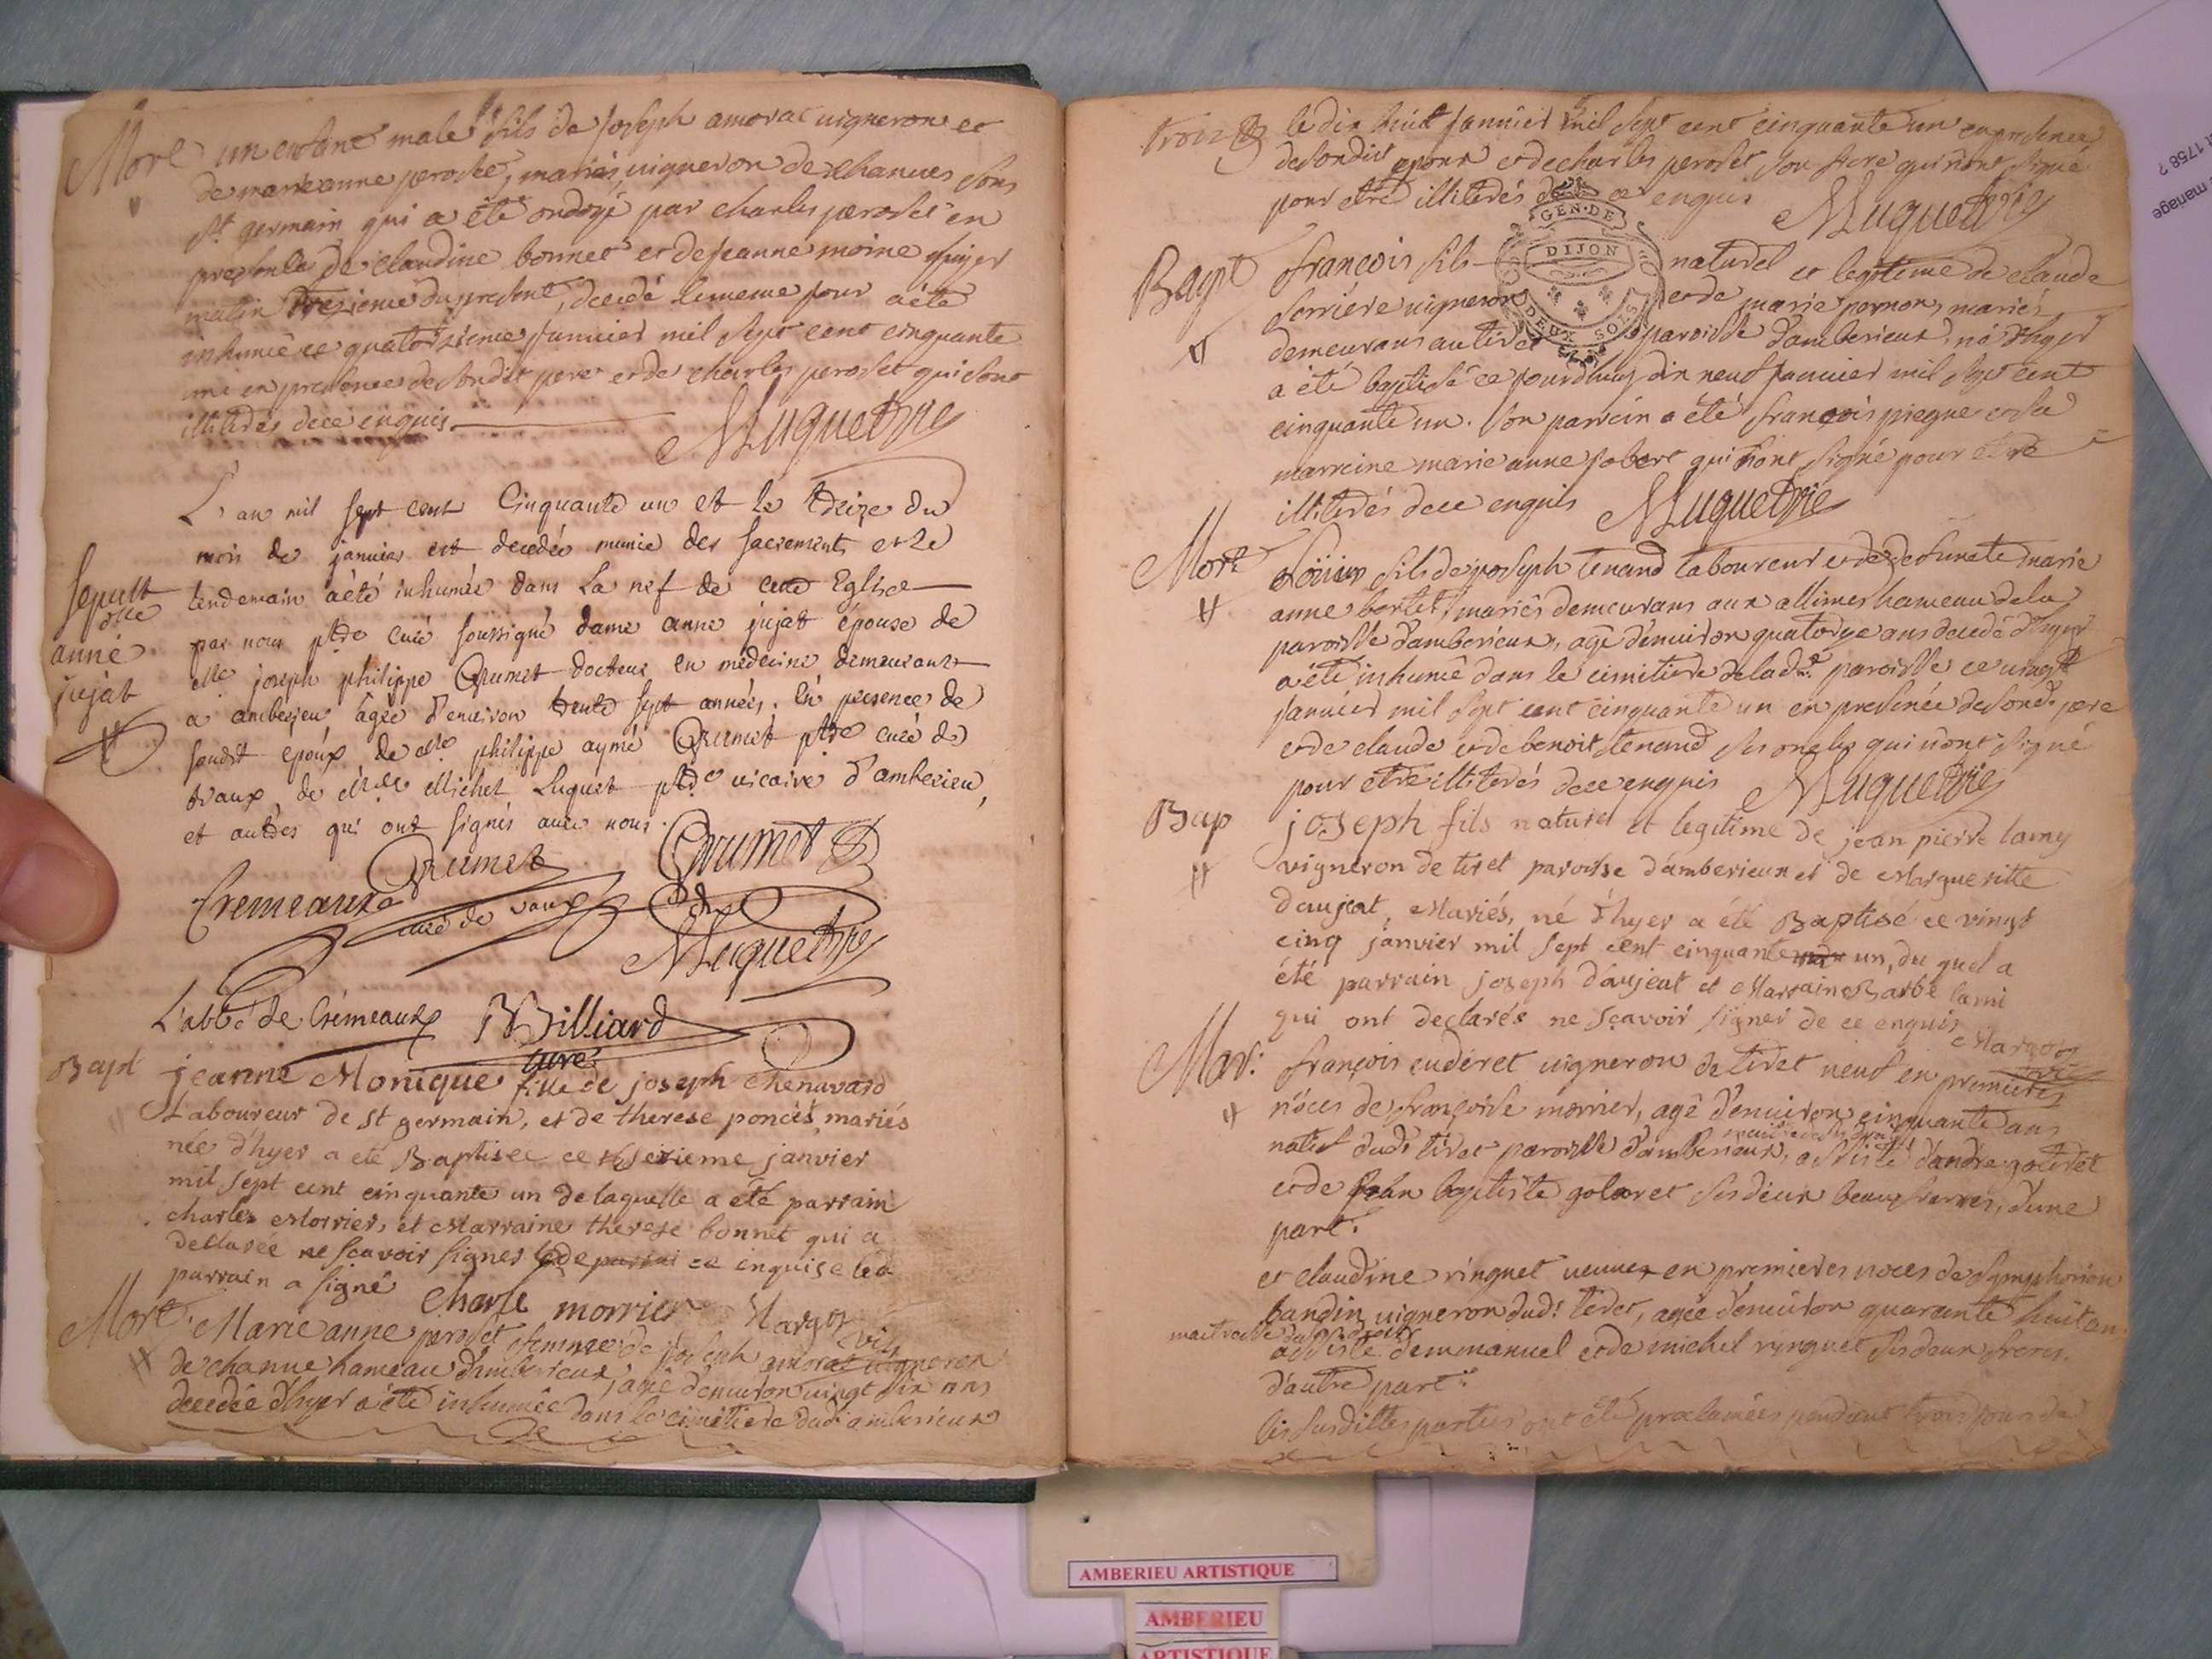 Mort un enfant male fils de joseph amorat vigneron et
de marie anne peroset, mariés, vigneron de chanves sous
st germain qui a été ondoyé par charles peroset en
presence de claudine bonnet et de jeanne moine
matin du present, decedé le meme jour a été
inhumé ce quatorzieme janvier mil sept cent cinquante
un en presence de sondit pere et de charles peroset qui sont
illiterés de ce enquis
MLuquet Vic
L'an mil sept cent cinquante un et le treize du
mois de janvier est decedée munie des sacrements et le
Sepult
lendemain a été inhumée dans la nef de cette Eglise
par nous ptre curé soussigné dame anne jujat épouse de
anne
mre joseph philippe Grumet docteur en medecine demeurant
jujat
a amberieu âgée d'environ trente sept années. En presence de
sondit epoux de mre philippe aymé Grumet ptre curé de
vaux, de mre Michel Luquet ptre vicaire d'amberieu,
et autres qui ont signés avec nous.
Grumet Grumet
Cremeaux
curé de vaux
MLuquet Vic
L'abbé de Cremeaux Billiard
curé
Bapt jeanne Monique fille de joseph chenavard
Laboureur de st germain, et de therese poncet mariés
née d'hyer a eté Baptisée ce seizieme janvier
mil sept cent cinquante un de laquelle a été parrain
charles Morrier, et Marraine therese bonnet qui a
declarée ne sçavoir signer de ce enquise led
parrain a signé
charle morrier Margot
vic
Mort. Marie anne peroset femme de joseph amorat vigneron
de chanve hameau d'amberieux, agée d'environ vingt six ans
decedée d'hyer a été inhumée dans le cimetiere dud: amberieux
trois
le dix huit janvier mil sept cent cinquante un en presence
de sondit epoux et de charles peroset son frere qui n'ont signé
pour etre illiterés de ce enquis MLuquet Vic
GEN. DE
DIJON
DEUX SOLS
Bapt françois fils naturel et legitime de claude
serriere vigneron et de marie pornon, mariés
demeurans au tiret paroisse d'amberieux, né d'hyer
a été baptisé ce jourdhuy dix neuf janvier mil sept cent
cinquante un. son parrein a été françois piegne et la
marreine marie anne jobert qui n'ont signé pour etre
illiterés de ce enquis MLuquet Vic
Mort Louis fils de joseph tenand laboureur et de defunte marie
anne bertet, mariés demeurans aux allimes hameau de la
paroisse d'amberieux, agé d'environ quatorze ans decedé d'hyer
a été inhumé dans le cimetiere de lad: paroisse ce vingt
janvier mil sept cent cinquante un en presence de sond: pere
et de claude et de benoit tenand ses oncles qui n'ont signé
pour etre illiterés de ce enquis MLuquet Vic
Bap joseph fils naturel et legitime de jean pierre lamy
vigneron de tiret paroisse d'amberieux et de Margueritte
daujeat, Mariés, né d'hyer a été Baptisé ce vingt
cinq janvier mil sept cent cinquante un, du quel a
été parrain joseph daujeat et Marraine Barbe lami
qui ont declarés ne sçavoir signer de ce enquis Margot
vic
Mar: françois cuderet vigneron de tiret veuf en premieres
nôces de françoise morrier, agé d'environ cinquante ans
natif dud: tiret paroisse d'amberieux, assisté d'andre goteret
et de jean baptiste goteret ses deux beaux freres, d'une
part.
et claudine ringuet veuve en premieres noces de symphorien
bandin vigneron dud: tiret, agée d'environ quarante huit an
maitresse de ses droits
assistée d'emmanuel et de michel ringuet ses deux freres.
d'autre part:
les susdittes parties ont été proclamées pendant trois jours de
AMBERIEU ARTISTIQUE
AMBERIEU
ARTISTIQUE
t 1758 ?
mariage